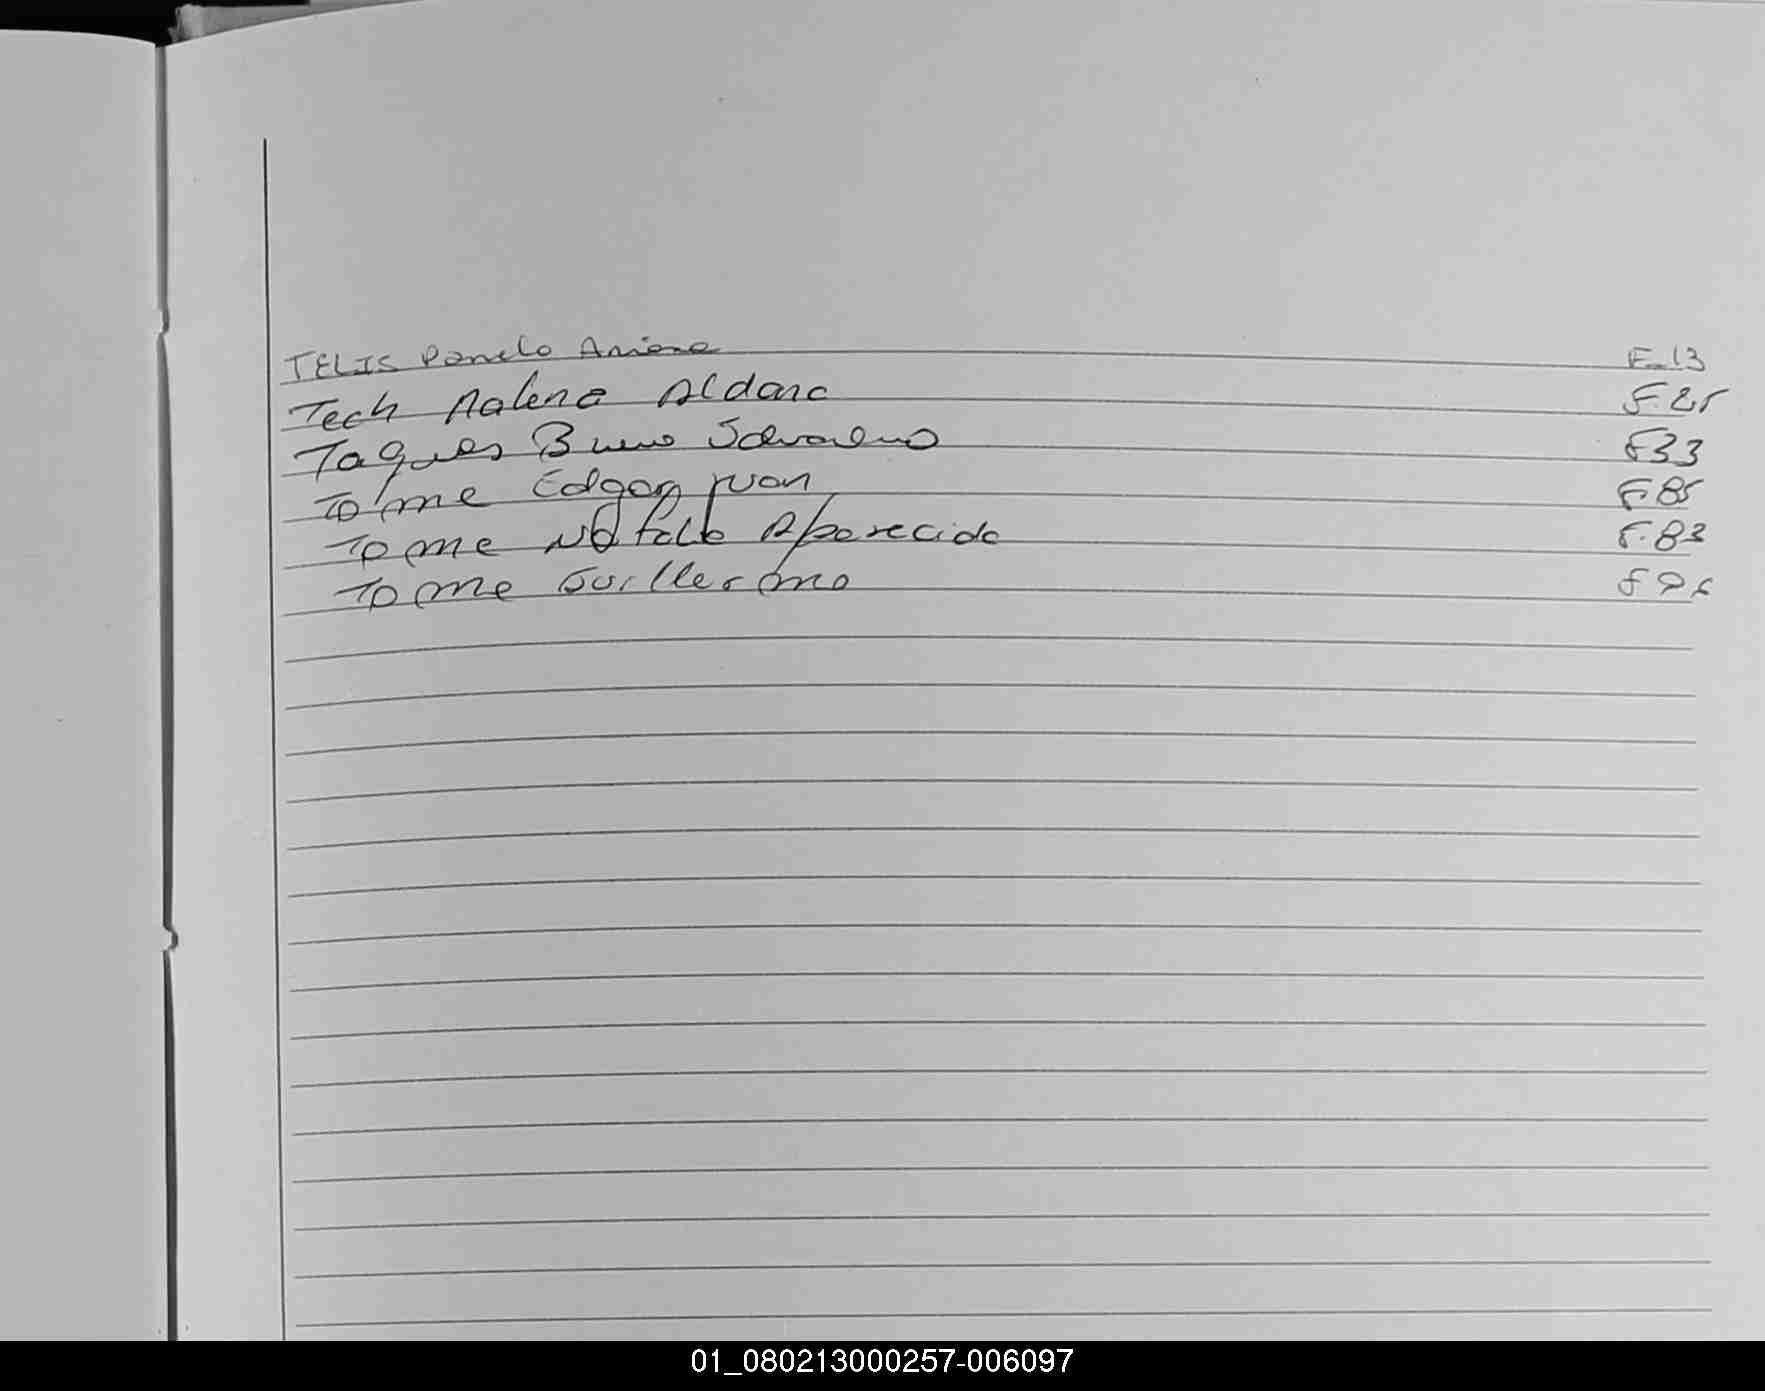 TELIS Pamelo Ariana F-13
Tech Malena Aldana F.25
Taques Bueno F33
Tome Edgar juan F.85
Tome Aparecida F.83
Tome Guillermo F
01_080213000257-006097